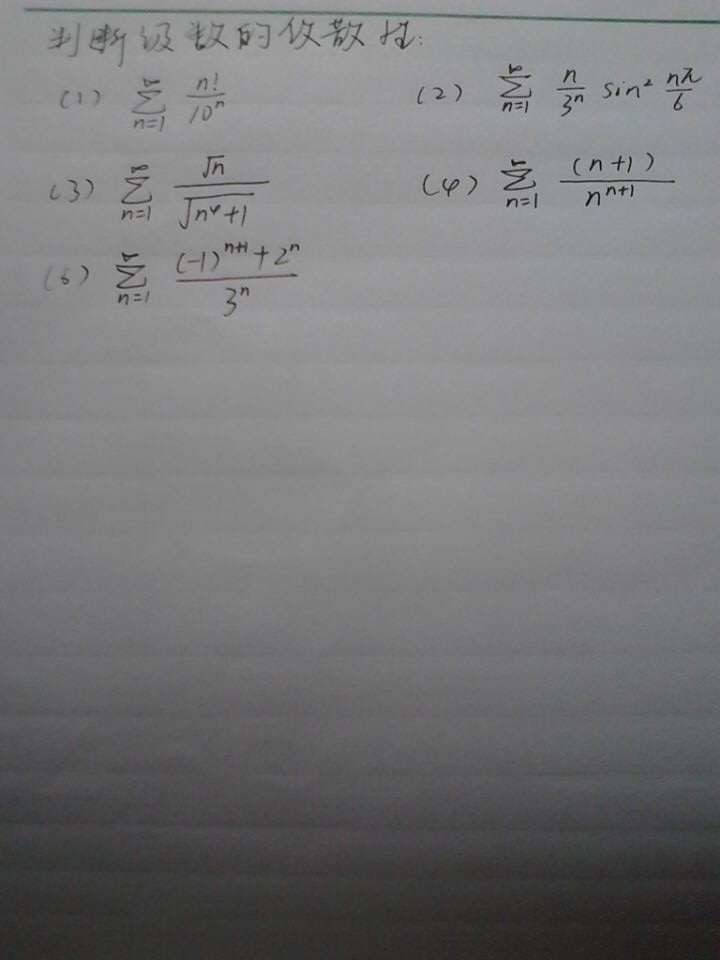 判断级数的收敛性:
(1) \sum_{n=1}^{\infty} \frac{n!}{10^n} (2) \sum_{n=1}^{\infty} \frac{n}{3^n} \sin^2 \frac{n\pi}{6}
(3) \sum_{n=1}^{\infty} \frac{\sqrt{n}}{\sqrt{n^4+1}} (4) \sum_{n=1}^{\infty} \frac{(n+1)}{n^{n+1}}
(6) \sum_{n=1}^{\infty} \frac{(-1)^{n+1}+2^n}{3^n}